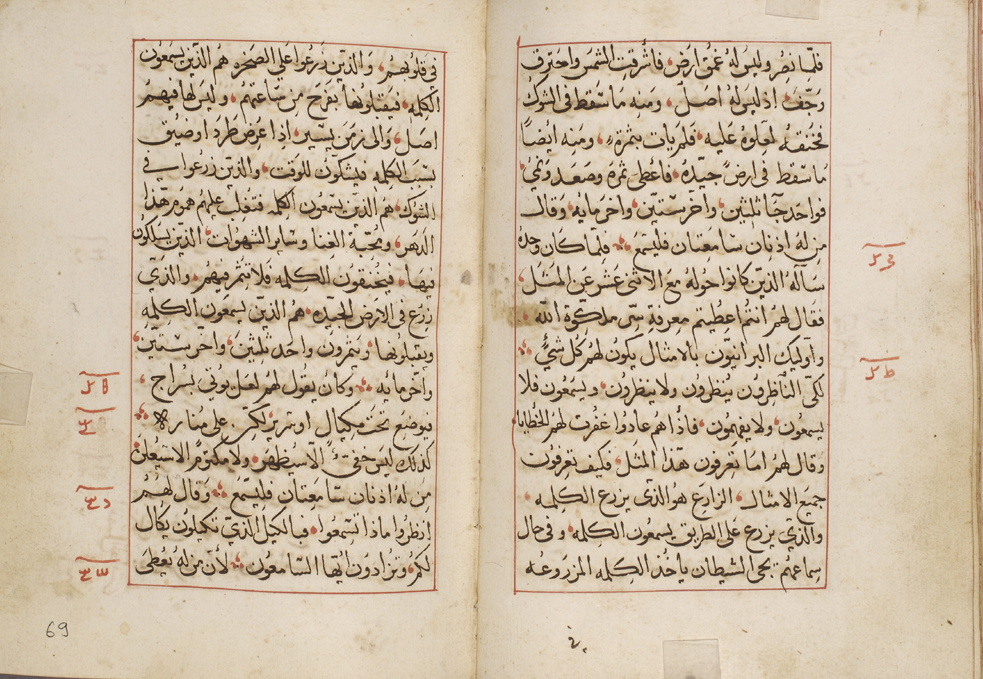 فلما نصر وليس له عمق ارض فاشرقت الشمس واحترق
وجف اذ ليس له اصل ومنه ما سقط في الشوك
فخنقه لعلوه عليه فلم يات بثمرة ومنه ايضاً
ما سقط في ارض جيّده فاعطى ثمرة وصعد ونمي
فواحد جآ ثلثين واخر ستين واخر مايه وقال
من له اذنان سامعتان فليسمع فلما كان وحده
ساله الذين كانوا حوله مع الاثنى عشر عن المثل
فقال لهم انتم اعطيتم معرفة سر ملكوة الله
واوليك البرانيون بالامثال يكون لهم كل شيء
لكى الناظرون ينظرون ولا ينظرون ويسمعون فلا
يسمعون ولا يفهمون فاذا هم عادوا غفرت لهم الخطايا
وقال لهم اما تعرفون هذا المثل فكيف تعرفون
جميع الامثال الزارع هو الذى يزرع الكلمه
والذي يزرع على الطريق يسمعون الكلمه وفي حال
سماعهم يجى الشيطان ياخذ الكلمه المزروعه
في قلوبهم والذين زرعوا على الصخره هم الذين يسمعون
الكلمه فيقبلوها بفرح من ساعتهم وليس لها فيهم
اصل والى زمن يسير اذا عرض طرد او ضيق
بسبب الكلمه فيشكون للوقت والذين زرعوا في
الشوك هم الذين يسمعون الكلمه فتغلب عليهم هموم هذا
الدهر ومحبة الغنا وساير الشهوات الذين يسلكون
فيها فيخنقون الكلمه فلا تثمر فيهم والذي
زرع في الارض الجيده هم الذين يسمعون الكلمه
ويقبلوها ويثمرون واحد ثلثين واخر ستين
واخر مائه وكان يقول لهم لعل يوتى بسراج
فيوضع تحت مكيال او سرير لكن على مناره
كذلك ليس خفي الا سيظهر ولا مكتوم الا سيعلن
من له اذنان سامعتان فليسمع وقال لهم
انظروا ماذا تسمعوا فبالكيل الذي تكيلون يكال
لكم وتزادون ايها السامعون لان من له يعطى
69